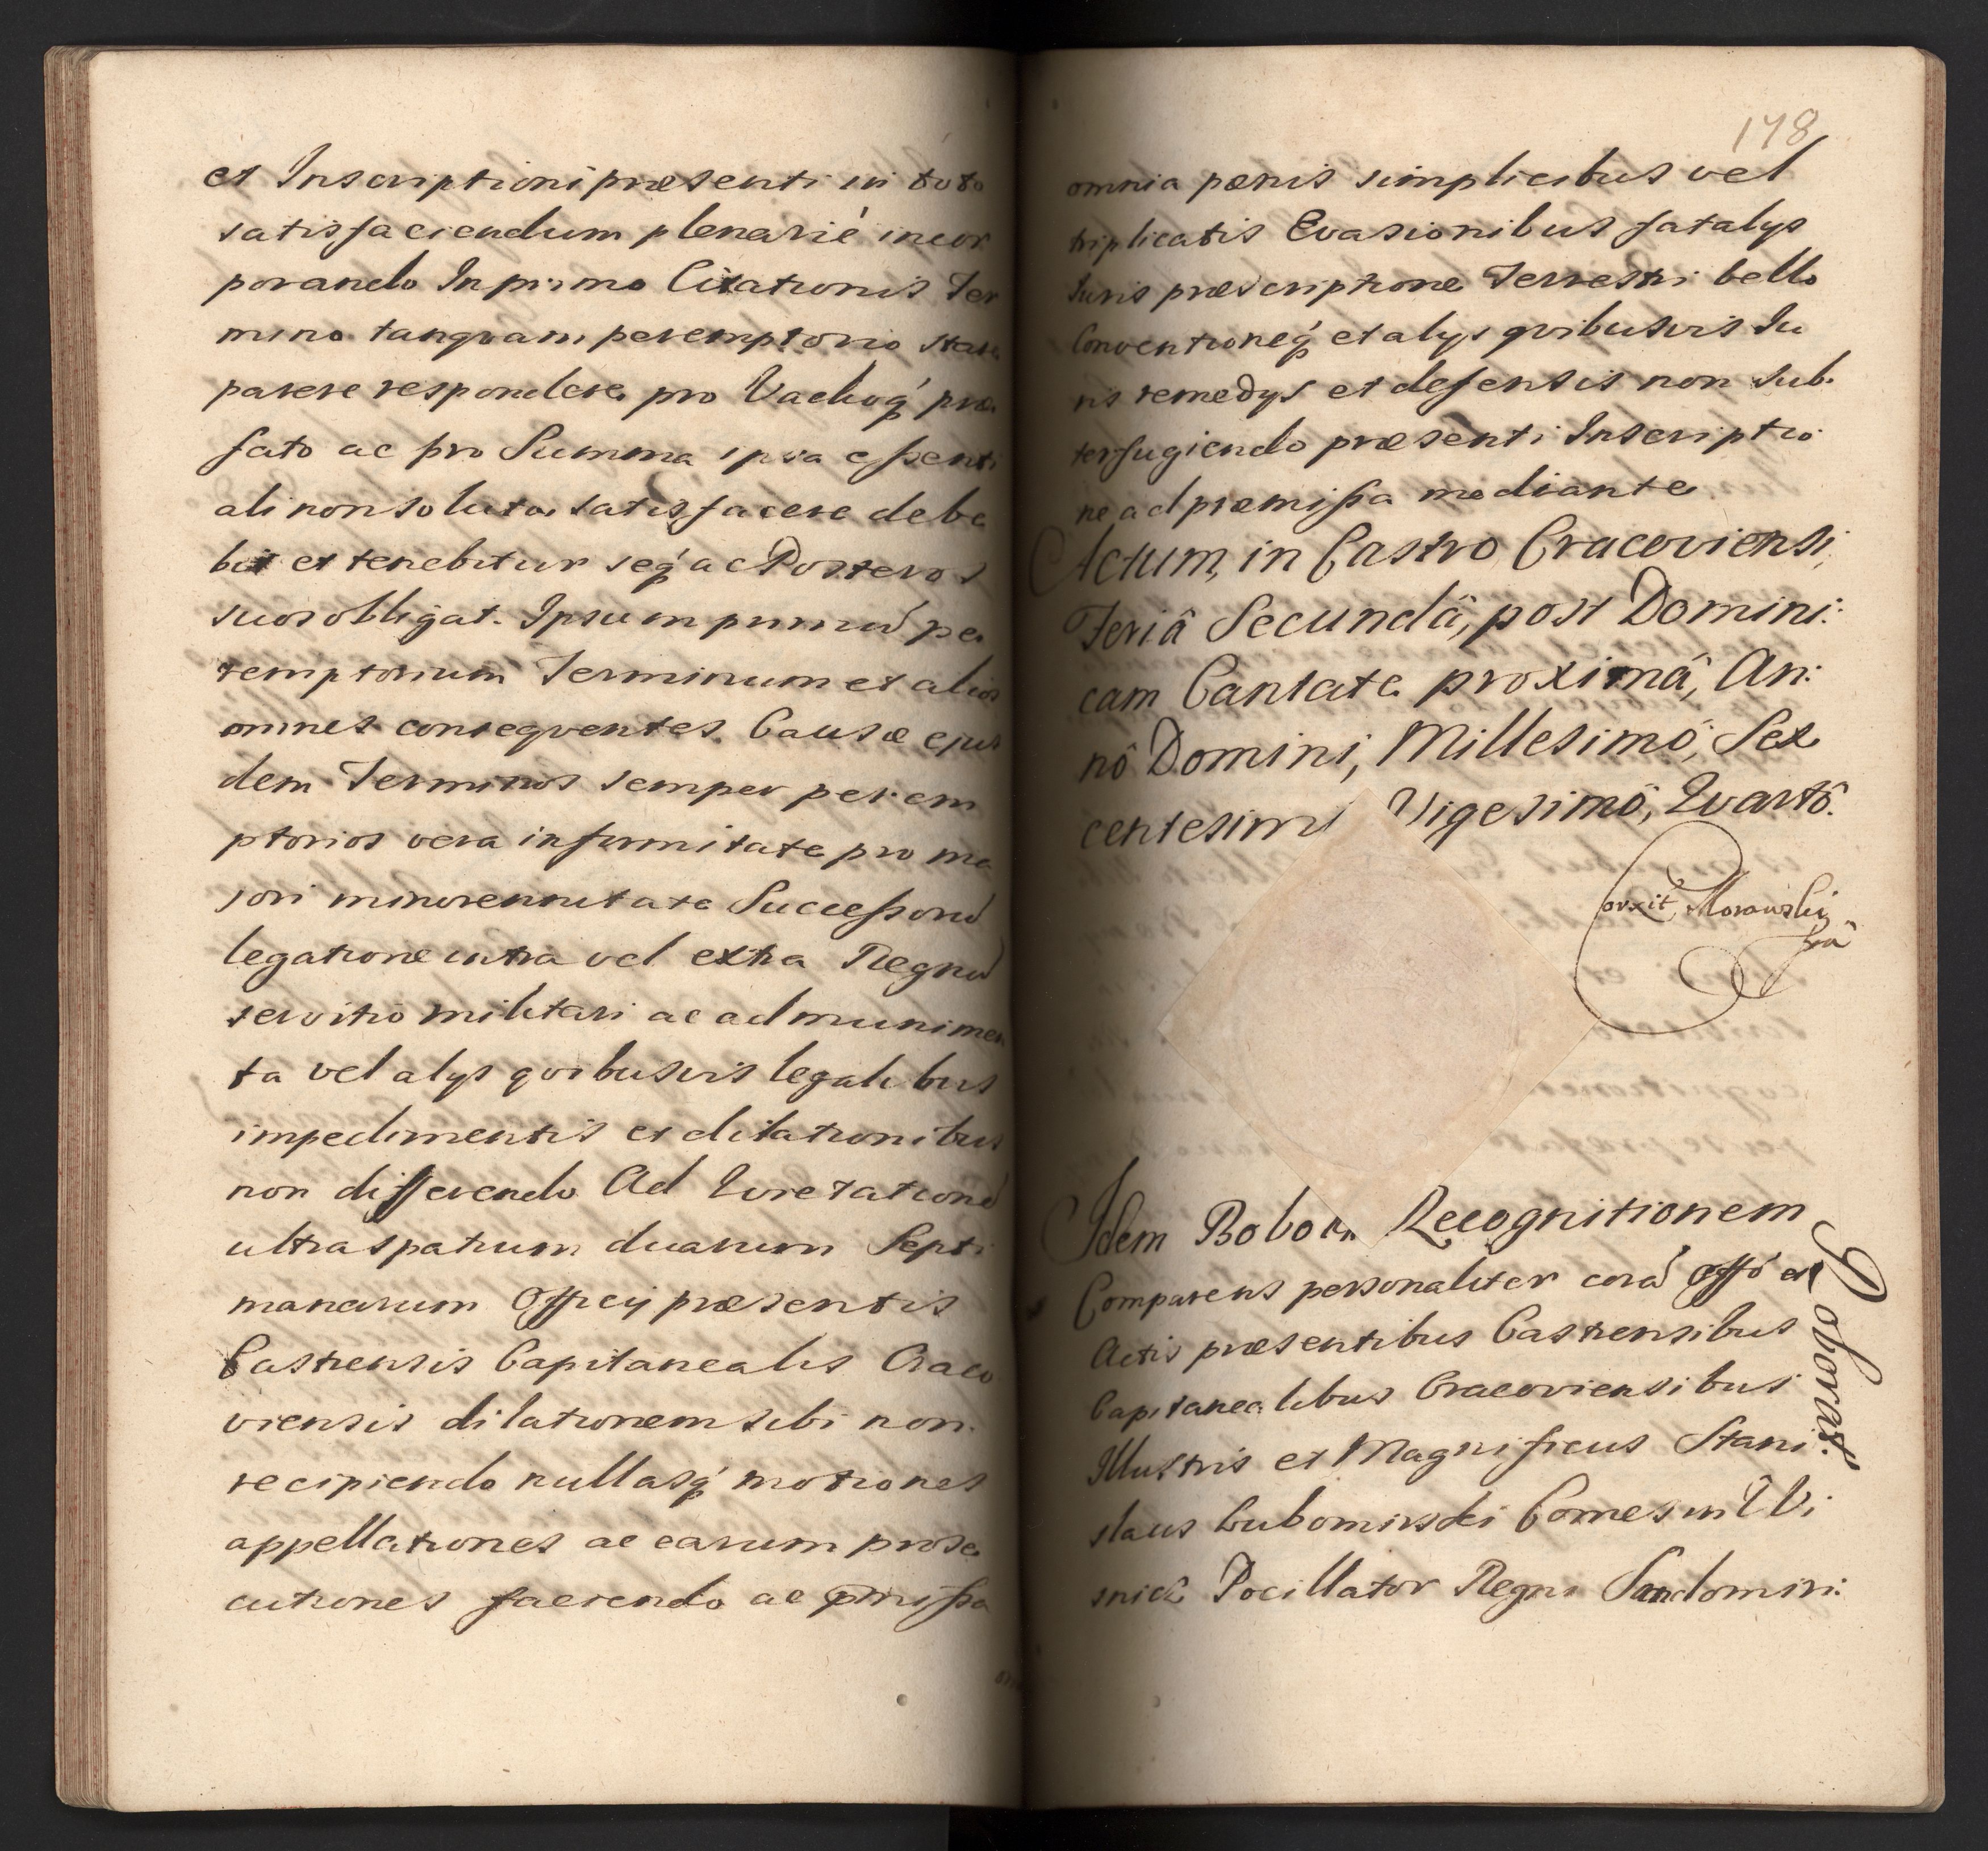 et Inscriptioni præsenti in toto
satisfaciendum plenariè incor
porando In primo Citationis Ter
mino tanqvam peremptorio stare
parere respondere pro Vadioq́ præ
fato ac pro Summa ipsa essenti
ali non soluta satisfacere debe
bit et tenebitur seq́ ac Posteros
suos obligat. Ipsum primũ pe
remptorium Terminum et alios
omnes conseqventes Causæ ejus
dem Terminos semper perem
ptorios vera infirmitate pro ma
jori minorennitate Successorũ
legatione intra vel extra Regnũ
servitio militari ac ad munimen
ta vel alys qvibusvis legalibus
impedimentis et dilationibus
non differendo Ad Qvietationẽ
ultra spatium duarum Septi
manarum Officij præsentis
Castrensis Capitanealis Craco
viensis dilationem sibi non
recipiendo nullasq́ motiones
appellationes ac earum prose
cutiones faciendo ac pmissa
178
omnia pænis simplicibus vel
triplicatis Evasionibus fatalys
Iuris præscriptione Terrestri bello
Conventioneq́ et alys qvibusvis Iu
ris remedys et defensis non sub:
terfugiendo præsenti Inscriptio
ne ad præmissa mediante
Actum, in Castro Cracoviensi,
Feriâ Secundâ, post Domini:
cam Cantate proximâ, An:
nô Domini, Millesimô, Sex
centesimo Vigesimô, Qvartô.
Corxit Morawski
Idem Boborn Recognitionem
Comparens personaliter corã offô et
Actis præsentibus Castrensibus
Capitanealibus Cracoviensibus
Illustris et Magnificus Stani:
slaus Lubomirski Comes in Wi
snicz Pocillator Regni Sandomiri: